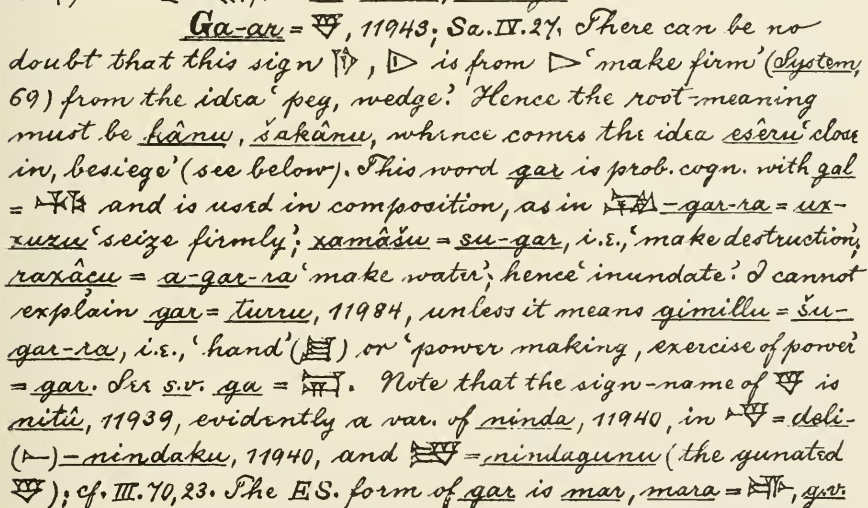 Ga-ar = 𒃻, 11943; Sa. IV. 27. There can be no
doubt that this sign , ▷ is from ▷ 'make firm' (System,
69) from the idea 'peg, wedge.' Hence the root-meaning
must be kânu, šakânu, whence comes the idea esêru 'close
in, besiege' (see below). This word gar is prob. cogn. with gal
= and is used in composition, as in -gar-ra = ux-
xuzu 'seize firmly'; xamâšu = su-gar, i.e., 'make destruction;
raxâçu = a-gar-ra 'make water'; hence 'inundate.' I cannot
explain gar = turru, 11984, unless it means gimillu = šu-
gar-ra, i.e., 'hand' (𒋗) or 'power making, exercise of power'
= gar. See s.v. ga = 𒂵. Note that the sign-name of 𒃻 is
nitû, 11939, evidently a var. of ninda, 11940, in = deli-
(𒀸)-nindaku, 11940, and = nindagunu (the gunated
𒃻); cf. III. 70, 23. The ES. form of gar is mar, mara = 𒈥, q.v.